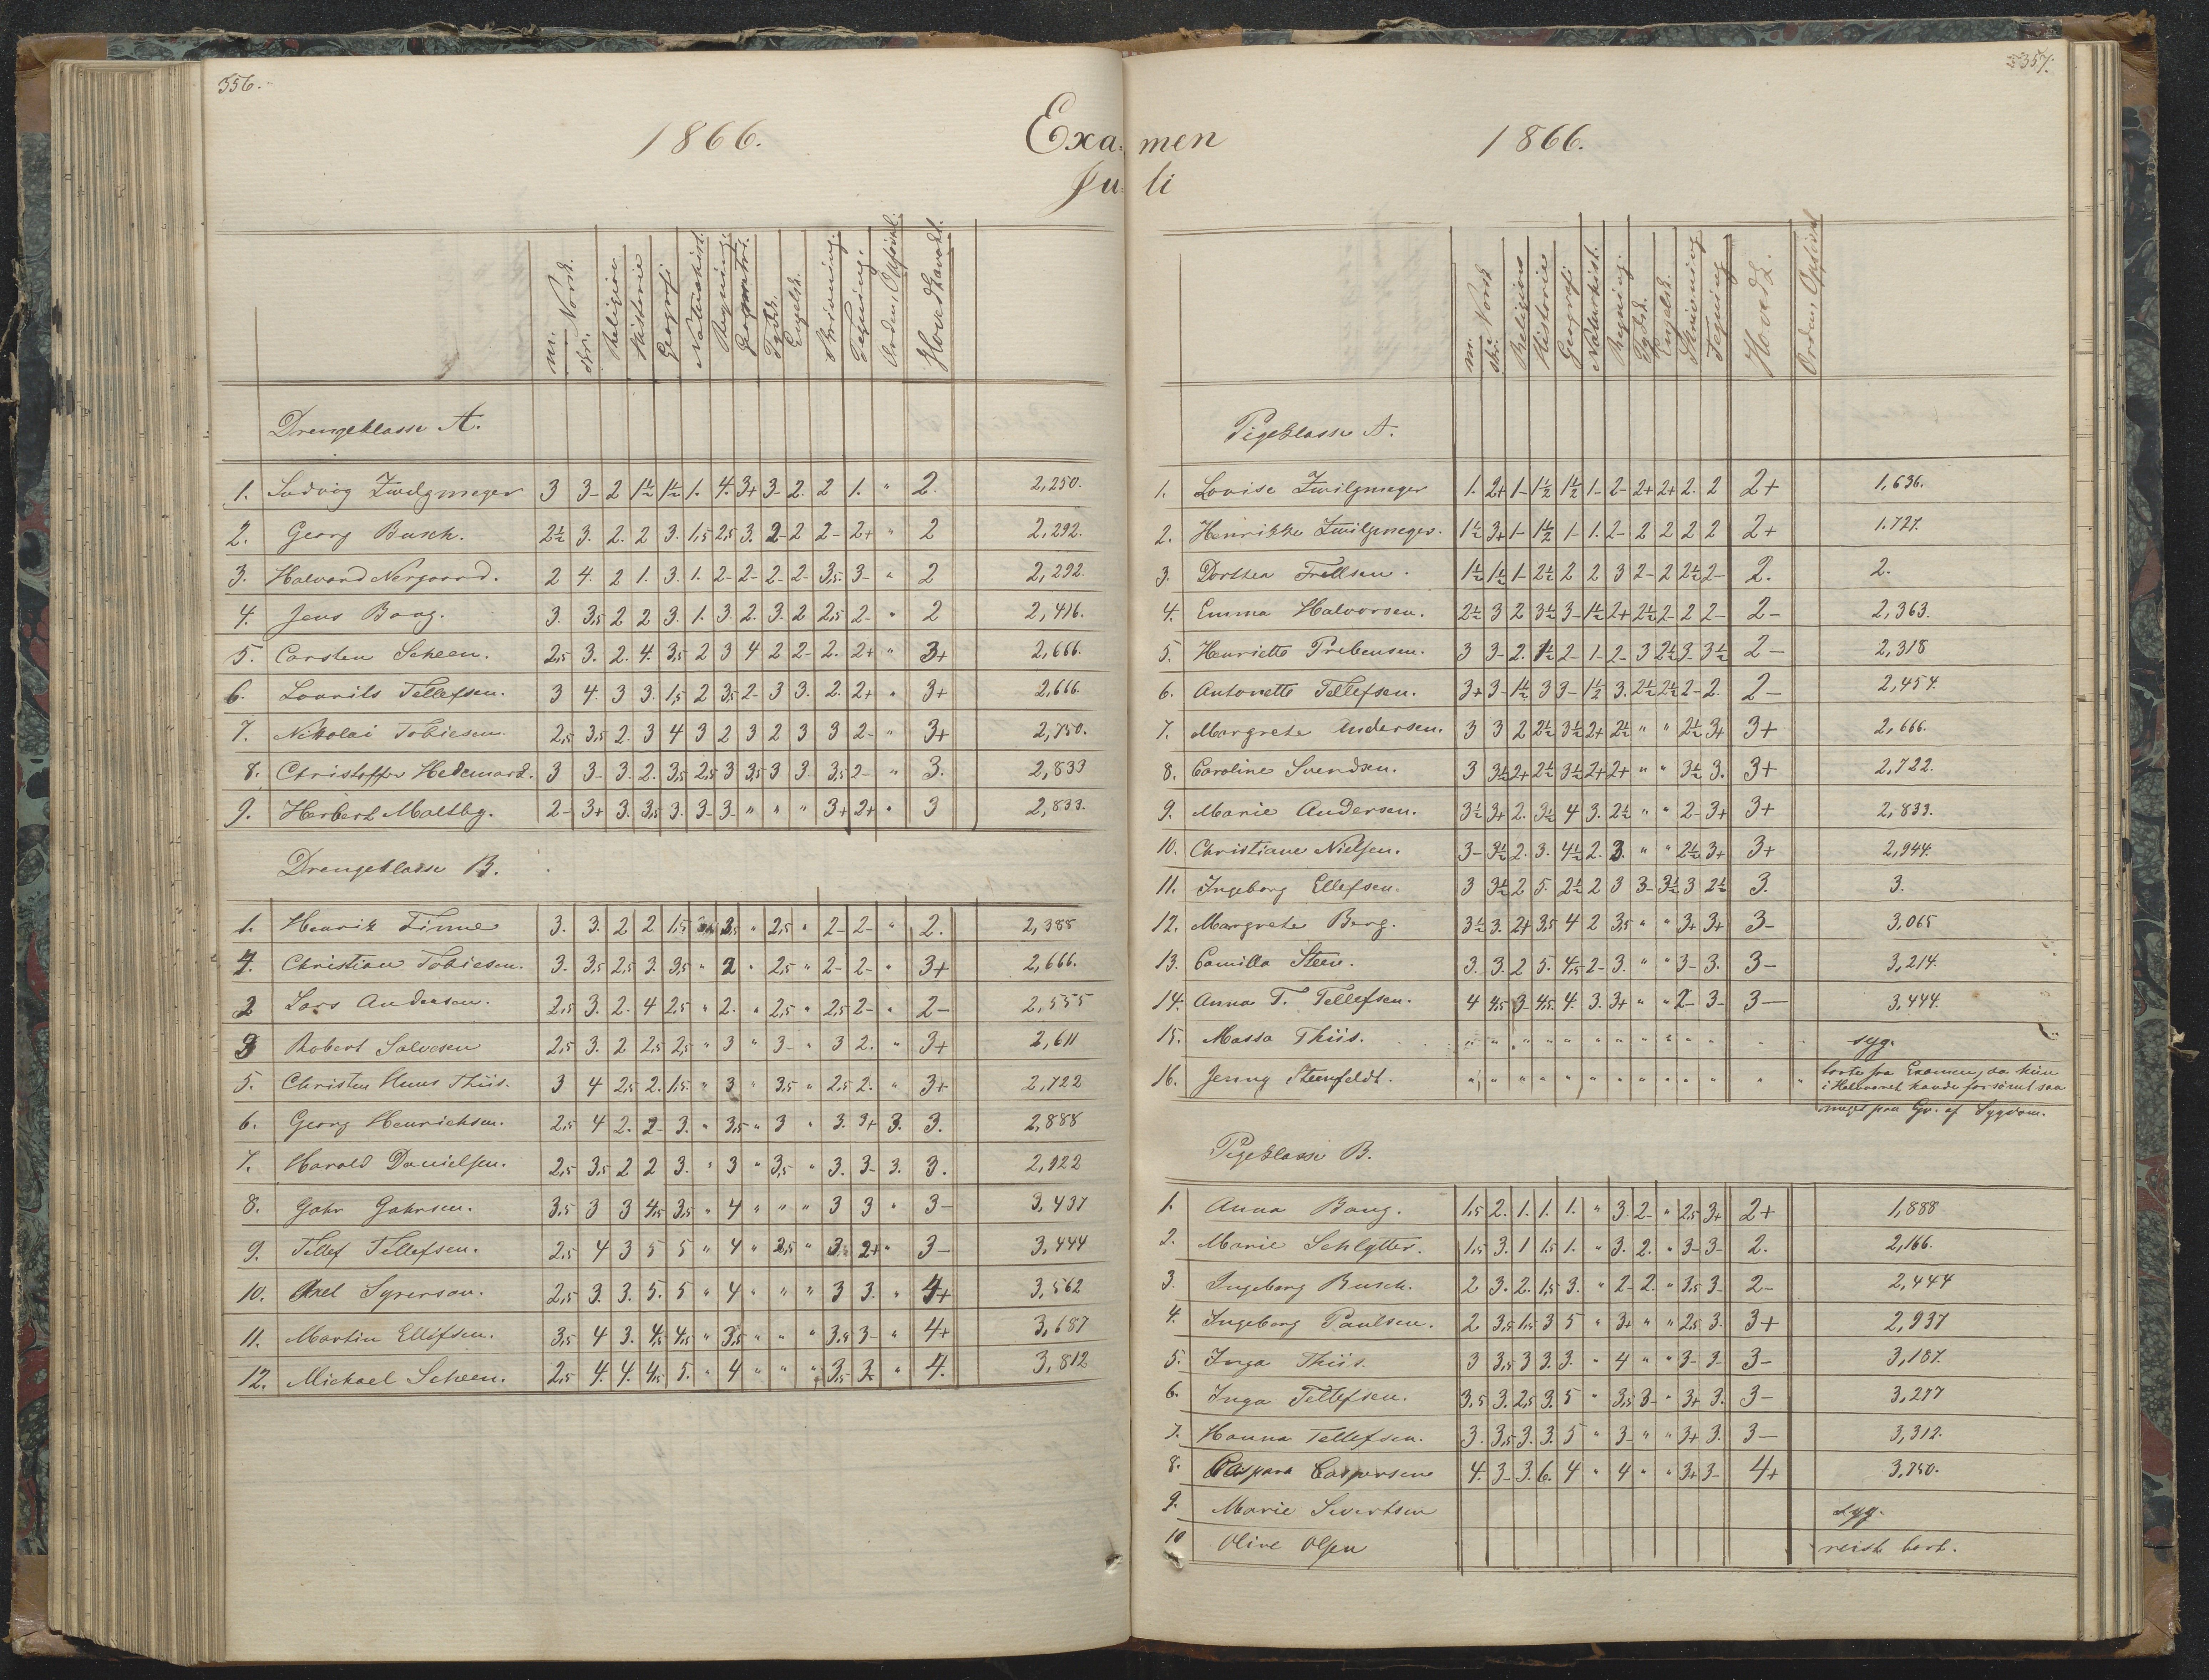 356.
1866.
Exa-
Ju-
m. Norsk. skr. Religion Historie Geografi Naturhist. Regning. Geometri. Tydsk. Engelsk. Skrivning. Tegning. Orden, Opførsel. Hovedkarakt.
Drengeklasse A.
1. Ludvig Zwilgmeyer 3 3- 2 1½ 1½ 1. 4. 3+ 3- 2. 2 1. " 2. 2,250.
2. Georg Busch. 2½ 3. 2. 2 3. 1,5 2,5 3. 2- 2 2- 2+ " 2 2,292.
3. Halvard Nergaard. 2 4. 2 1. 3. 1. 2- 2- 2- 2- 3,5. 3- " 2 2,292.
4. Jens Bang. 3. 3,5 2 2 3. 1. 3. 2. 3. 2 2,5 2- " 2 2,416.
5. Carsten Scheen. 2,5 3. 2. 4. 3,5 2 3 4 2 2- 2. 2+ " 3+ 2,666.
6. Laurits Tellefsen. 3 4. 3 3. 1,5 2 3,5 2- 3 3. 2. 2+ " 3+ 2,666.
7. Nikolai Tobiesen. 2,5 3,5 2. 3 4 3 2 3 2 3 3 2- " 3+ 2,750.
8. Christoffer Hedemard. 3 3- 3. 2. 3,5 2,5 3 3,5 3 3. 3,5 2- " 3. 2,833
9. Herbert Maltby. 2- 3+ 3. 3,5 3. 3- 3- " " " 3+ 2+ " 3 2,833.
Drengeklasse B.
1. Henrik Finne 3. 3. 2 2 1,5 3,5 " 2,5 " 2- 2- " 2. 2,388
4. Christian Tobiesen. 3. 3,5 2,5 3. 3,5 " 2 " 2,5 " 2- 2- " 3+ 2,666.
2 Lars Andersen. 2,5 3. 2. 4 2,5 " 2. " 2,5 " 2,5 2- " 2- 2,555
3 Robert Salvesen 2,5 3. 2 2,5 2,5 " 3 " 3- " 3 2. " 3+ 2,611
5. Christen Huus Thiis. 3 4 2,5 2. 1,5 " 3 " 3,5 " 2,5 2. " 3+ 2,722
6. Georg Henrichsen. 2,5 4 2. 2- 3. " 3,5 " 3 " 3. 3+ 3. 3. 2,888
7. Harald Danielsen. 2,5 3,5 2 2 3. " 3 " 3,5 " 3. 3- 3. 3. 2,922
8. Gahr Gahrsen. 3,5 3 3 4,5 3,5 " 4 " " " 3 3 " 3- 3,437
9. Tellef Tellefsen. 2,5 4 3 5 5 " 4 " 2,5 " 3. 2+ " 3- 3,444
10. Axel Syversen. 2,5 3. 3. 5. 5 " 4 " " " 3 3. " 4+ 3,562
11. Martin Ellifsen. 3,5 4 3. 4,5 4,5 " 3,5 " " " 3,5 3- " 4+ 3,687
12. Michael Scheen. 2,5 4. 4. 4,5 5. " 4 " " " 3,5 3. " 4. 3,812
357.
men
1866.
li
m. Norsk skr. Religion Historie Geografi Naturhist. Regning. Tydsk. Engelsk. Skrivning Tegning Hovedk. Orden, Opførsel
Pigeklasse A.
1. Lovise Zwilgmeyer 1. 2+ 1- 1½ 1½ 1- 2- 2+ 2+ 2. 2 2+ 1,636.
2. Henrikke Zwilgmeyer. 1½ 3+ 1- 1½ 1- 1. 2- 2 2 2 2 2+ 1.727.
3. Dorthea Frellsen. 1½ 1½ 1- 2½ 2 2 3 2- 2 2½ 2- 2. 2.
4. Emma Halvorsen. 2½ 3 2 3½ 3- 1½ 2+ 2½ 2- 2 2- 2- 2,363.
5. Henriette Prebensen. 3 3- 2. 1½ 2- 1- 2- 3 2½ 3- 3½ 2- 2,318
6. Antonette Tellefsen. 3+ 3- 1½ 3 3- 1½ 3. 2½ 2½ 2- 2. 2- 2,454.
7. Margrete Andersen. 3 3 2 2½ 3½ 2+ 2½ " " 2½ 3+ 3+ 2,666.
8. Caroline Svendsen. 3 3½ 2+ 2½ 3½ 2+ 2+ " " 3½ 3. 3+ 2,722.
9. Marie Andersen. 3½ 3+ 2. 3½ 4 3. 2½ " " 2- 3+ 3+ 2,833.
10. Christiane Nielsen. 3- 3½ 2. 3. 4½ 2. 3. " " 2½ 3+ 3+ 2,944.
11. Ingeborg Ellefsen. 3 3½ 2 5. 2½ 2 3 3- 3½ 3 2½ 3. 3.
12. Margrete Berg. 3½ 3. 2+ 3,5 4 2 3,5 " " 3+ 3+ 3- 3,065
13. Camilla Steen. 3. 3. 2 5. 4,5 2- 3. " " 3- 3. 3- 3,214.
14. Anna T. Tellefsen. 4 4,5 3- 4,5 4. 3. 3+ " " 2- 3- 3- 3,444.
15. Massa Thiis. " " " " " " " " " " " " " syg.
16. Jenny Steenfeldt. " " " " " " " " " " " " " borte fra Examen, da hun
i Halvaaret havde forsømt saa
meget paa Gr. af Sygdom.
Pigeklasse B.
1. Anna Bang. 1,5 2. 1. 1. 1. " 3. 2- " 2,5 3+ 2+ 1,888
2. Marie Schlytter. 1,5 3. 1 1,5 1. " 3. 2. " 3- 3- 2. 2,166.
3. Ingeborg Busch. 2 3. 2. 1,5 3. " 2- 2. " 3,5 3- 2- 2,444
4. Ingeborg Paulsen. 2 3,5 1,5 3 5 " 3+ " " 2,5 3. 3+ 2,937
5. Inga Thiis. 3 3,5 3 3. 3. " 4 " " 3- 3- 3- 3,187.
6. Inga Tellefsen. 3,5 3. 2,5 3. 5 " 3,5 3- " 3+ 3. 3- 3,277
7. Hanna Tellefsen. 3. 3,5 3. 3. 5 " 3- " " 3+ 3. 3- 3,312.
8. Caspara Caspersen 4. 3- 3. 6. 4 " 4 " " 3+ 3- 4+ 3,750.
9. Marie Sivertsen syg.
10 Olive Olsen reist bort.